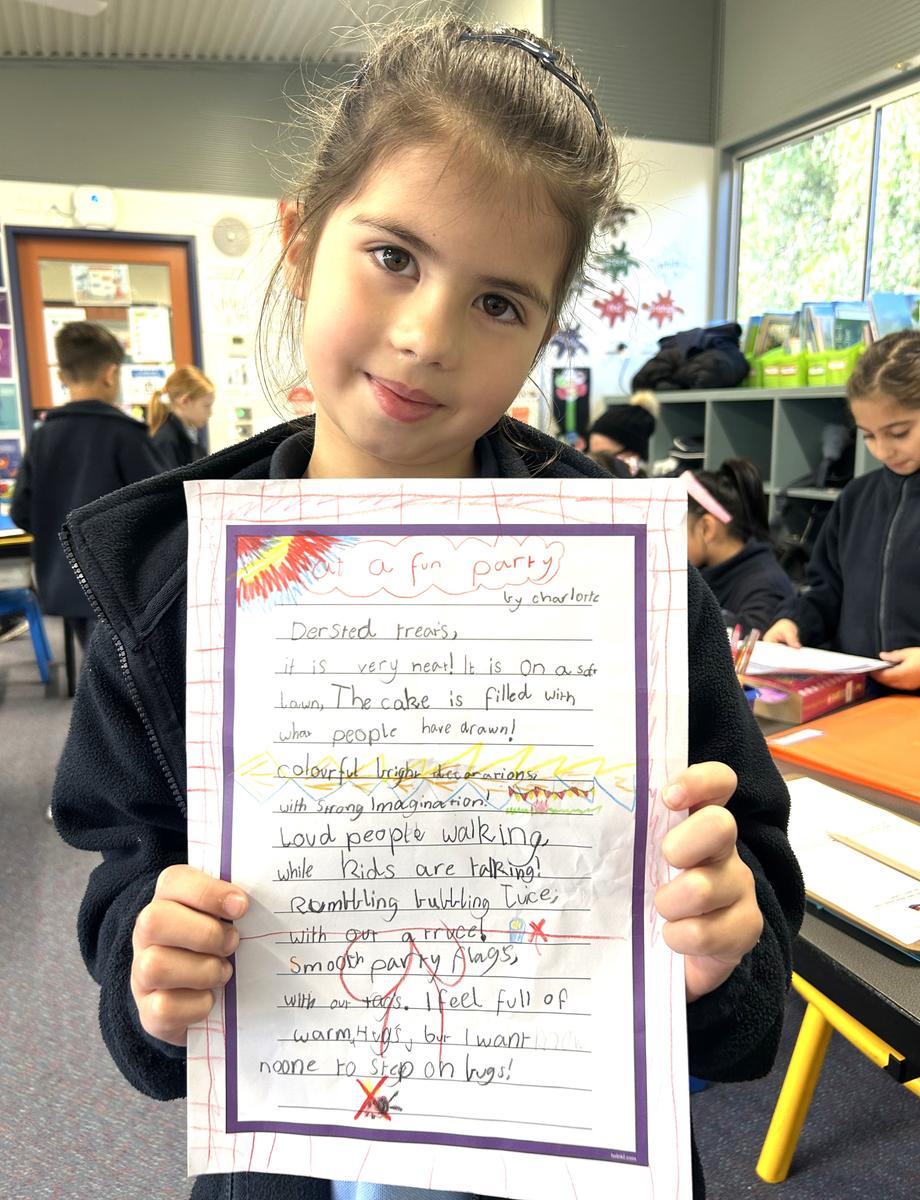 at a fun party
by charlotte
Dersted treats,
it is very neat! It is on a soft
lawn, The cake is filled with
what people have drawn!
colourful bright decorations,
with strong Imagination!
Loud people walking,
while kids are talking!
Rumbling bubbling Juice,
with out a truce!
Smooth party flags,
with out tags. I feel full of
warm Hugs, but I want
noone to step on bugs!
twinkl.com